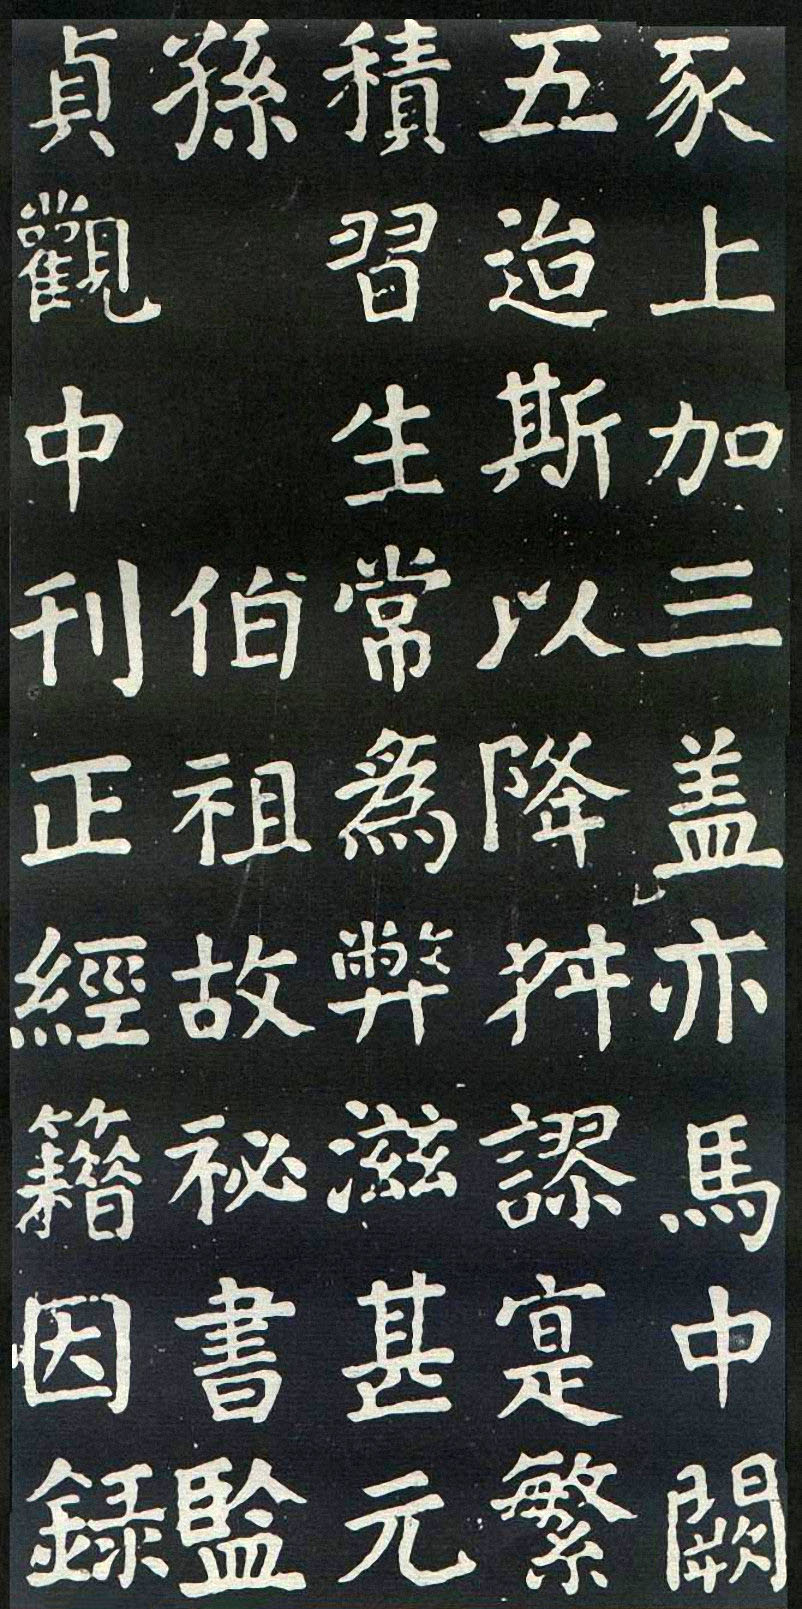 豕上加三盖亦馬中闕
五迨斯以降舛謬寔繁
積習生常爲弊滋甚元
孫　　伯祖故祕書監
貞觀中刊正經籍因録